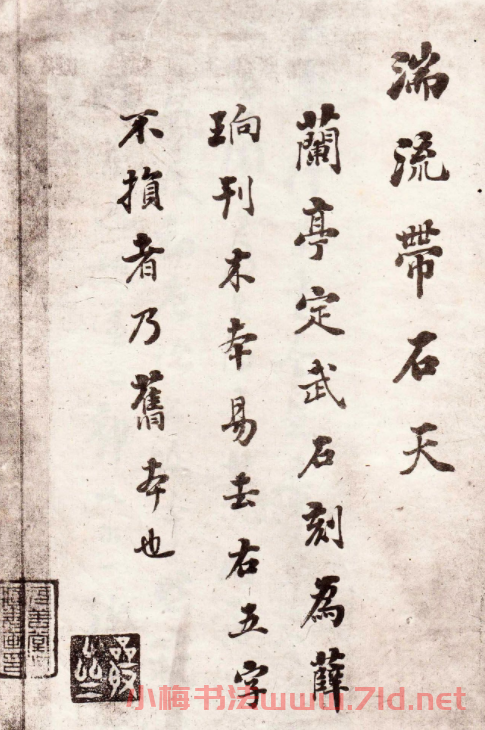 湍流帶石天
蘭亭定武石刻為薛
珦刊木本易去右五字
不損者乃舊本也
小梅书法www.71d.net